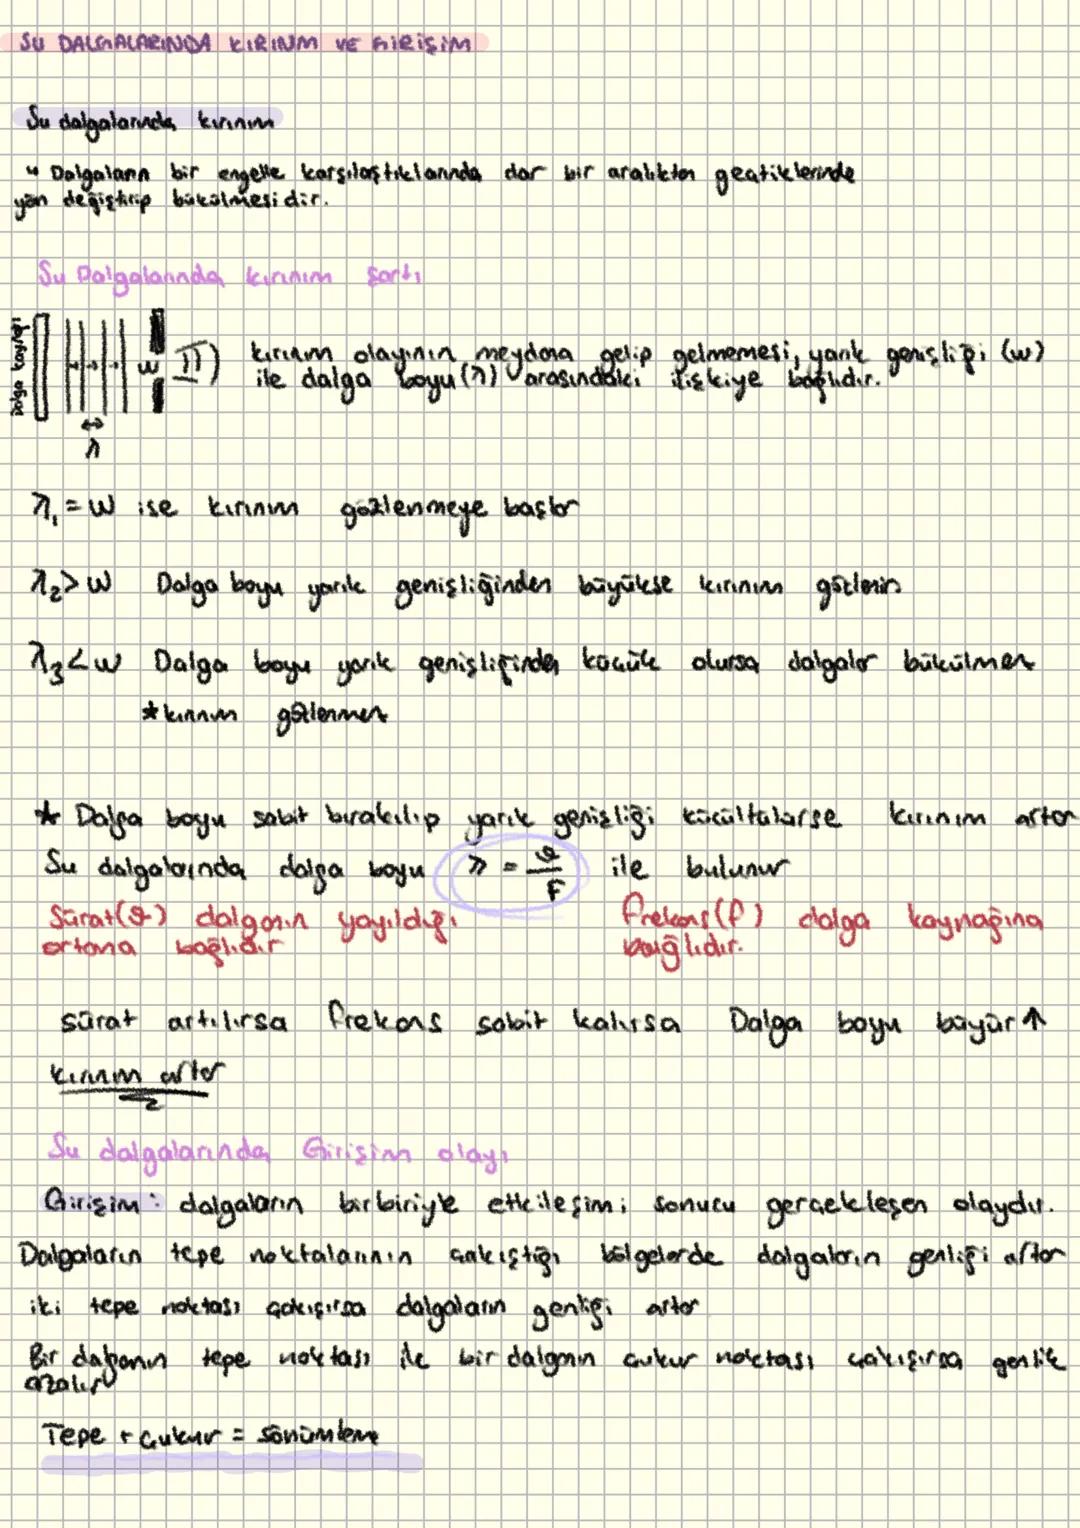 SU DALGALARINDA KIRINIM VE GİRİŞİM
Su dalgalarında kırınım
" Dalgaların bir engelle karşılaştıklarında dar bir aralıktan geçtiklerinde
yön değiştirip bükülmesidir.
Su Dalgalarında kırınım şartı
Dalga kaynağı
w
λ
kırınım olayının meydana gelip gelmemesi, yarık genişliği (w)
ile dalga boyu (λ) arasındaki ilişkiye bağlıdır.
λ₁ = w ise kırınım gözlenmeye başlar
λ₂ > w Dalga boyu yarık genişliğinden büyükse kırınım gözlenir
λ₃ < w Dalga boyu yarık genişliğinden küçük olursa dalgalar bükülmez
* kırınım gözlenmez
* Dalga boyu sabit bırakılıp yarık genişliği küçültülürse kırınım artar
Su dalgalarında dalga boyu λ = ϑ/F ile bulunur
Sürat(ϑ) dalganın yayıldığı
ortama bağlıdır
frekans(f) dalga kaynağına
bağlıdır.
sürat artılırsa frekans sabit kalırsa Dalga boyu büyür ↑
kırınım artar
Su dalgalarında Girişim olayı
Girişim: dalgaların birbiriyle etkileşimi sonucu gerçekleşen olaydır.
Dalgaların tepe noktalarının çakıştığı bölgelerde dalgaların genliği artar
iki tepe noktası çakışırsa dalgaların genliği artar
Bir dalganın tepe noktası ile bir dalganın çukur noktası çakışırsa genlik
azalır
Tepe + Çukur = sönümleme